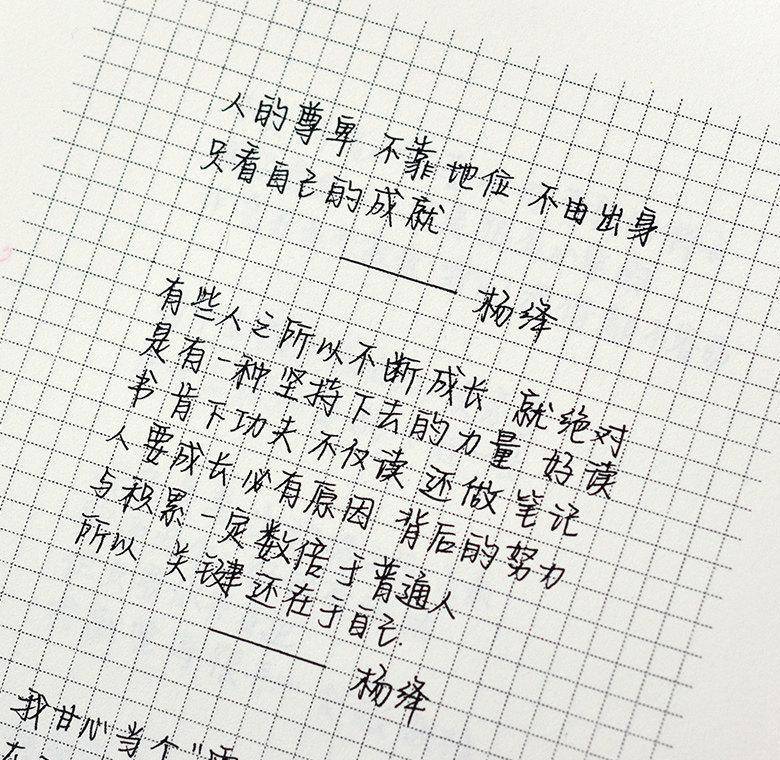 人的尊卑 不靠地位 不由出身
只看自己的成就
—— 杨绛
有些人之所以不断成长 就绝对
是有一种坚持下去的力量 好读
书肯下功夫 不仅读 还做笔记
人要成长必有原因 背后的努力
与积累一定数倍于普通人
所以 关键还在于自己.
—— 杨绛
我甘心当个"